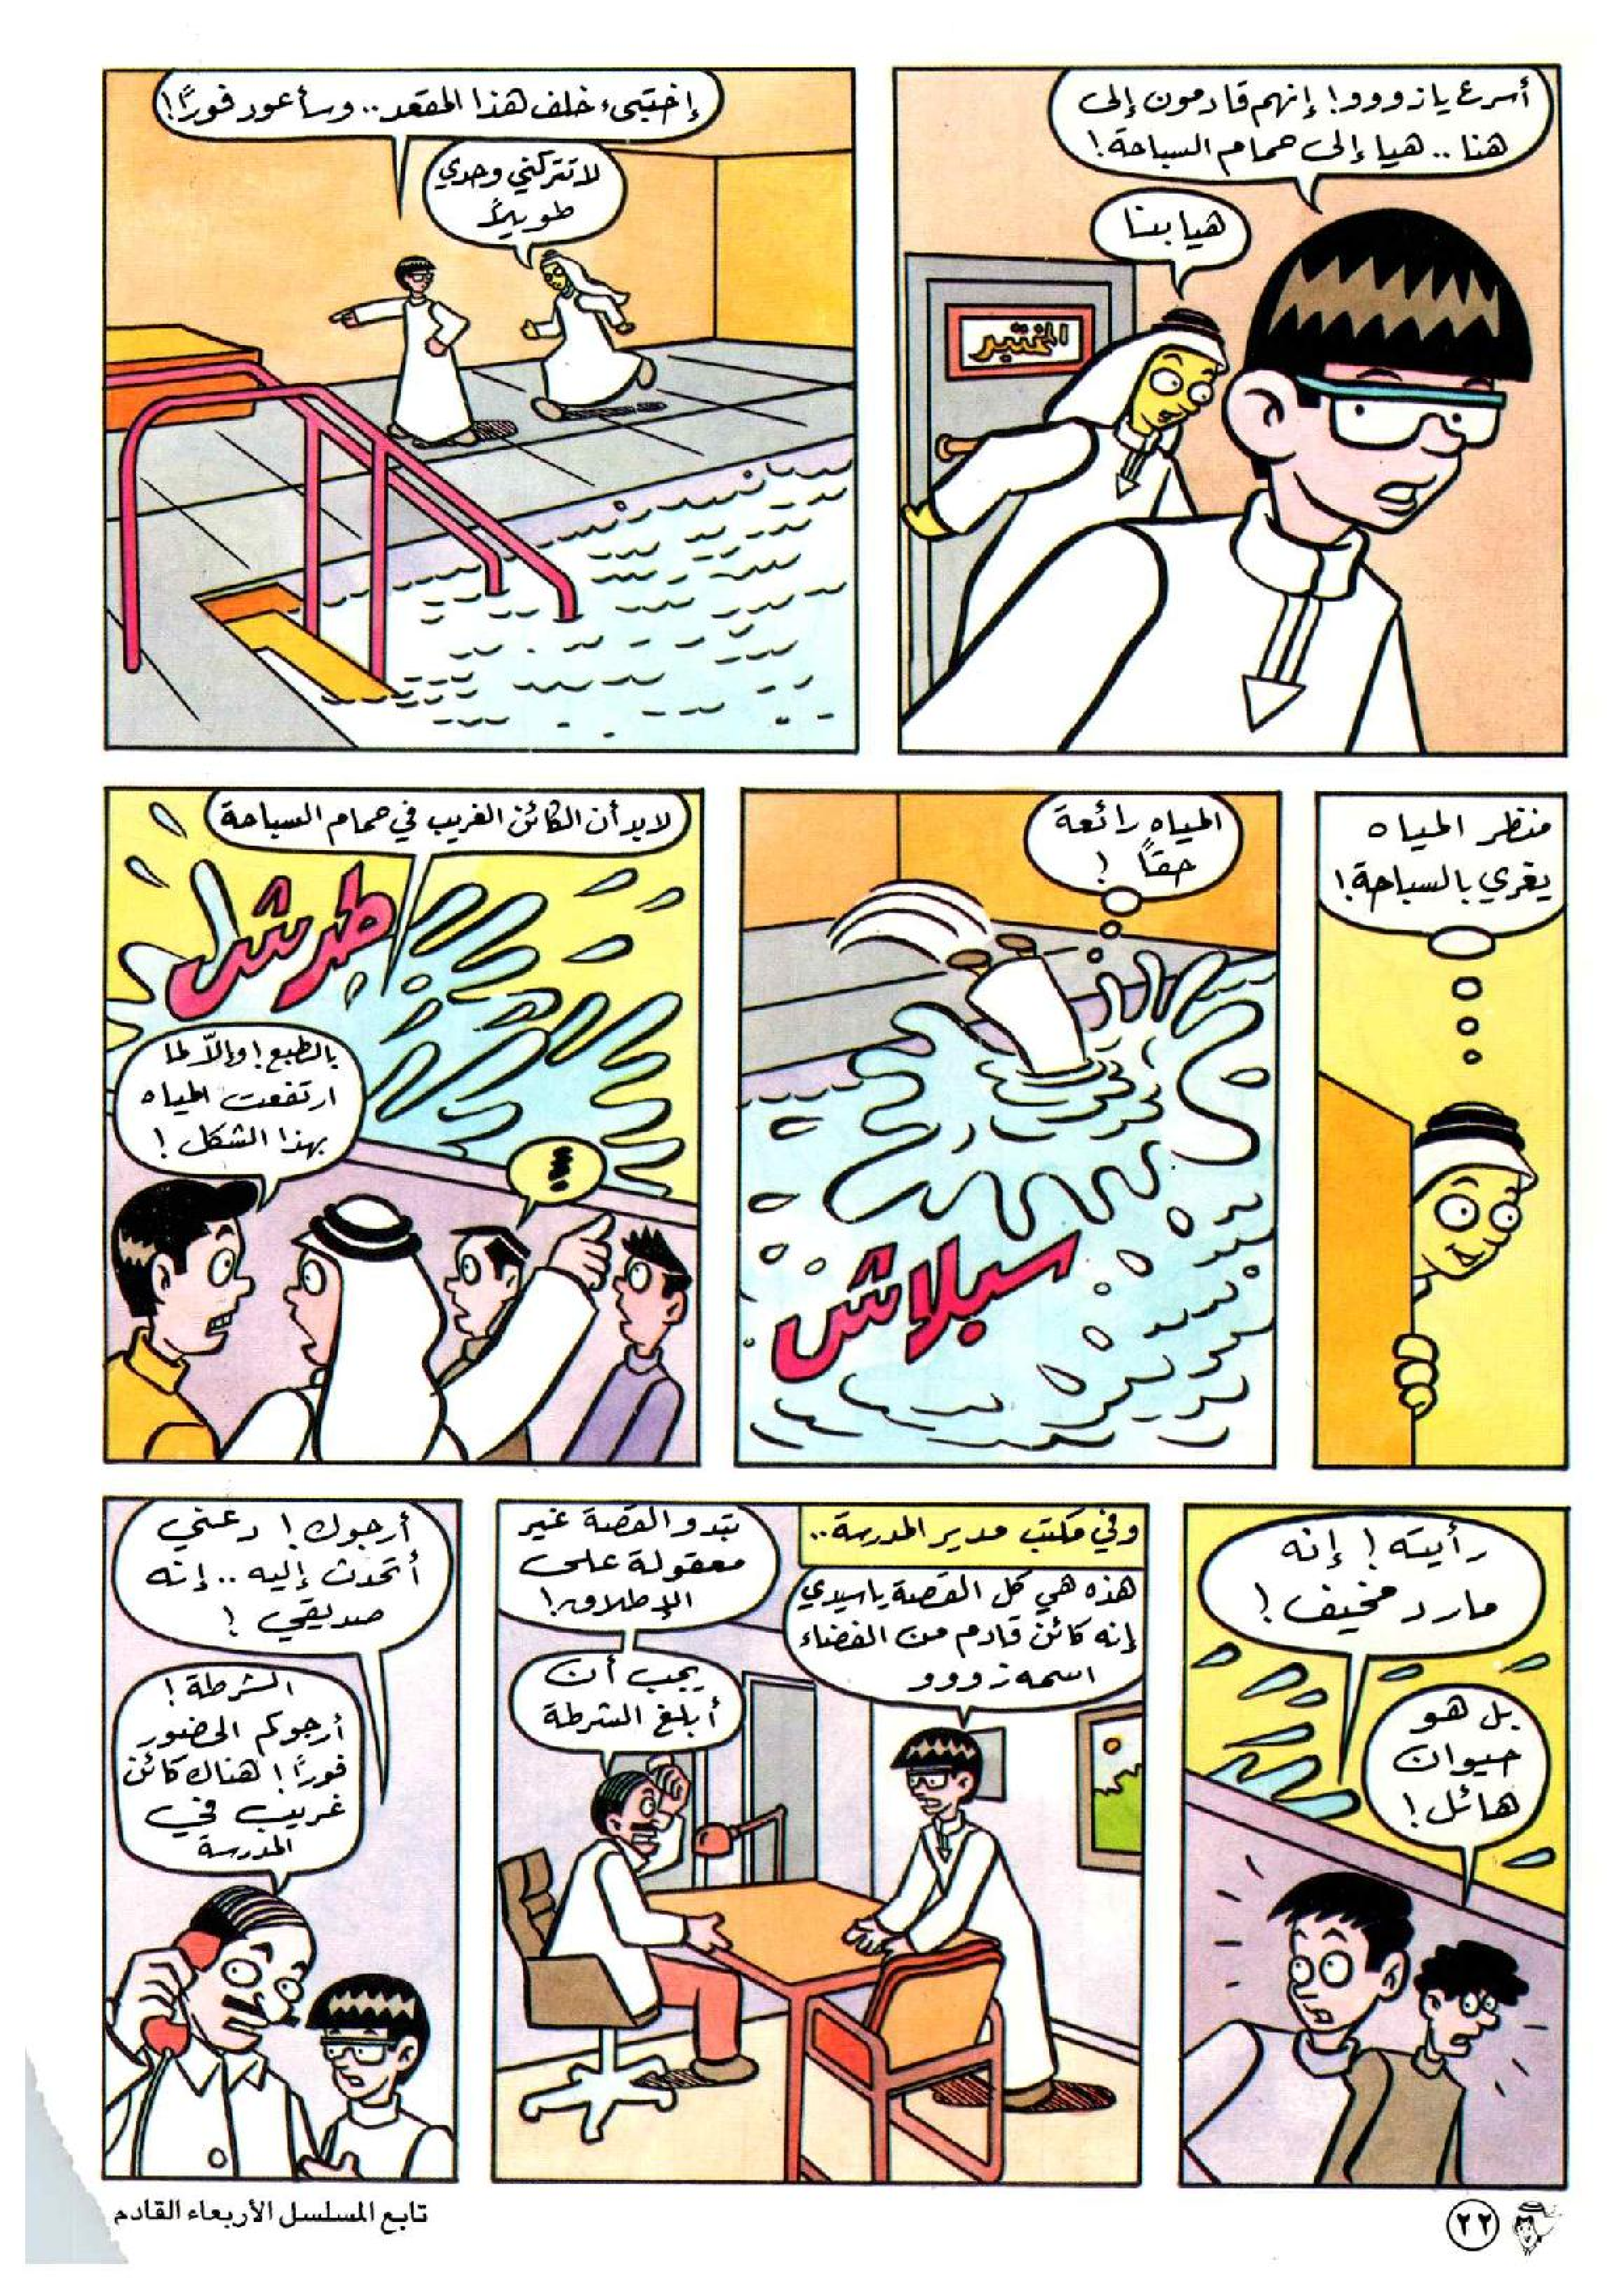 أسرع يا زووو! إنهم قادمون إلى
هنا .. هيا إلى حمام السباحة!
هيا بنا
المختبر
إختبىء خلف هذا المقعد .. وسأعود فورًا!
لا تتركني وحدي
طويلاً
منظر المياه
يغري بالسباحة!
المياه رائعة
حقاً !
سبلاش
لابد أن الكائن الغريب في حمام السباحة
طرشش
بالطبع! وإلاّ لما
ارتفعت المياه
بهذا الشكل !
!!!
رأيته ! إنه
مارد مخيف !
بل هو
حيوان
هائل !
وفي مكتب مدير المدرسة ..
هذه هي كل القصة يا سيدي
إنه كائن قادم من الفضاء
اسمه زووو
تبدو القصة غير
معقولة على
الإطلاق!
يجب أن
أبلغ الشرطة
أرجوك ! دعني
أتحدث إليه .. إنه
صديقي !
الشرطة !
أرجوكم الحضور
فورًا ! هناك كائن
غريب في
المدرسة
٢٢
تابع المسلسل الأربعاء القادم